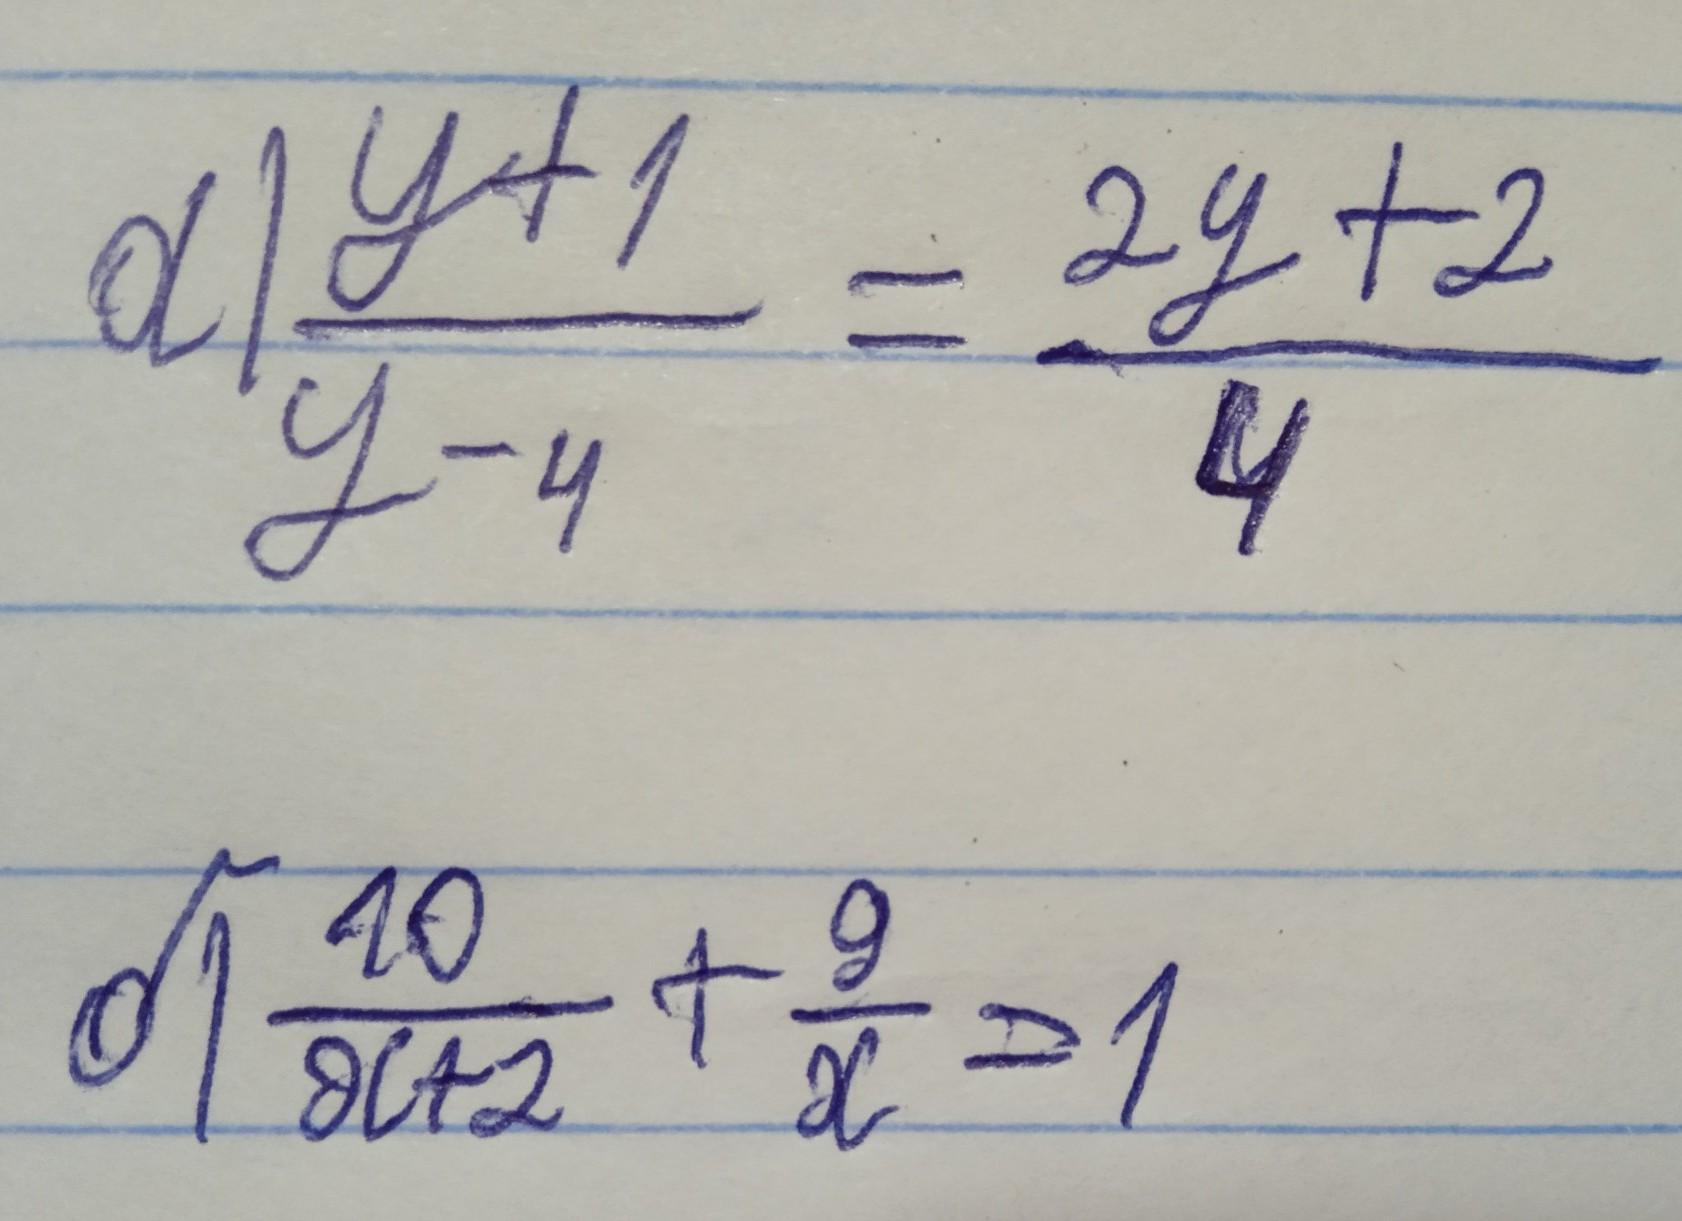 а) (y+1)/(y-4) = (2y+2)/4
б) 10/(x+2) + 9/x = 1